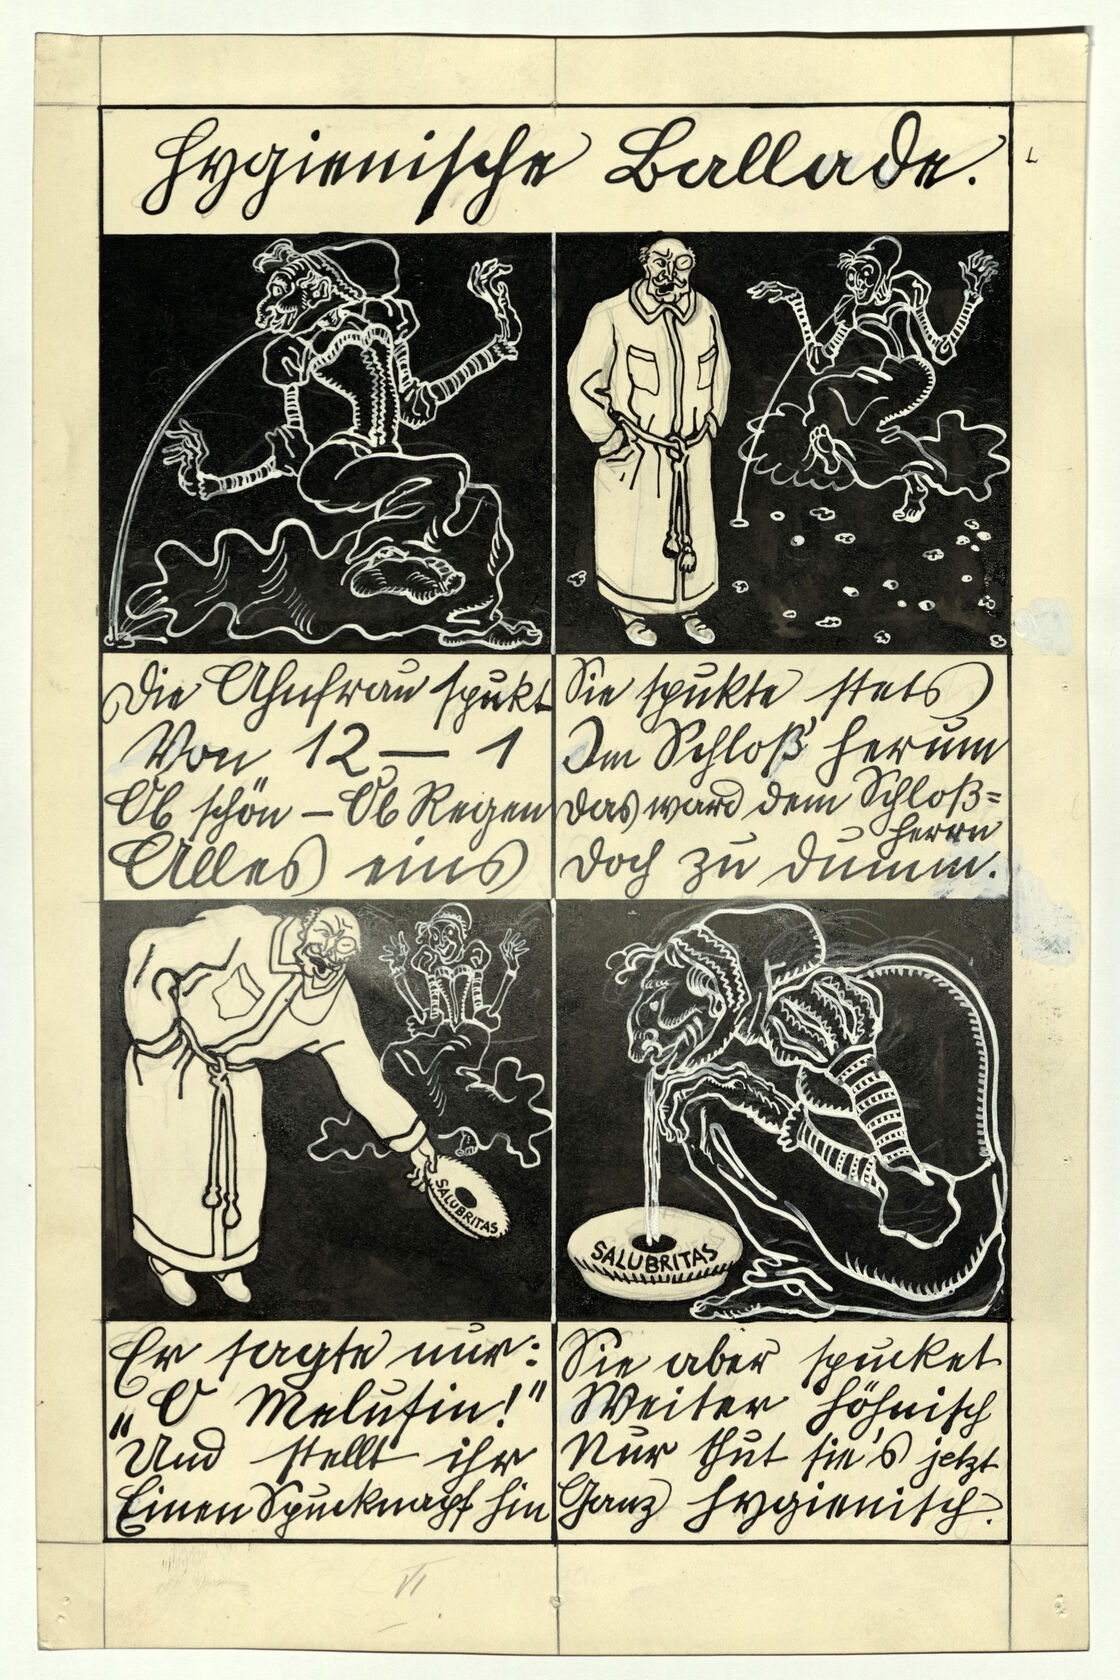 Hygienische Ballade.
Die Ahnfrau spukt
Von 12 — 1
Ob schön – Ob Regen
Alles eins
Sie spukte stets
Im Schloß herum
Das ward dem Schloß=
herrn
Doch zu dumm.
SALUBRITAS
Er sagte nur:
„O Melusin!"
Und stellt ihr
Einen Spucknapf hin
SALUBRITAS
Sie aber spucket
Weiter höhnisch
Nur thut sie's jetzt
Ganz hygienisch.
VI